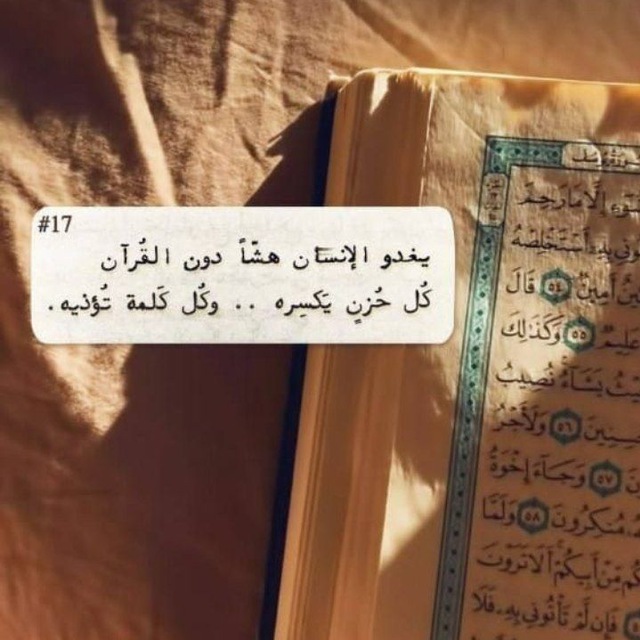 #17
يغدو الإنسان هشّاً دون القُرآن
كُل حُزنٍ يَكسِره .. وكُل كَلمة تُؤذيه.
إِلَّا مَا رَحِمَ
أَسْتَخْلِصْهُ
أَمِينٌ ٥٤ قَالَ
عَلِيمٌ ٥٥ وَكَذَٰلِكَ
يَشَآءُ نُصِيبُ
٥٦ وَلَأَجْرُ
٥٧ وَجَآءَ إِخْوَةُ
مُنكِرُونَ ٥٨ وَلَمَّا
مِّنْ أَبِيكُمْ أَلَا تَرَوْنَ
فَإِن لَّمْ تَأْتُونِي بِهِۦ فَلَا